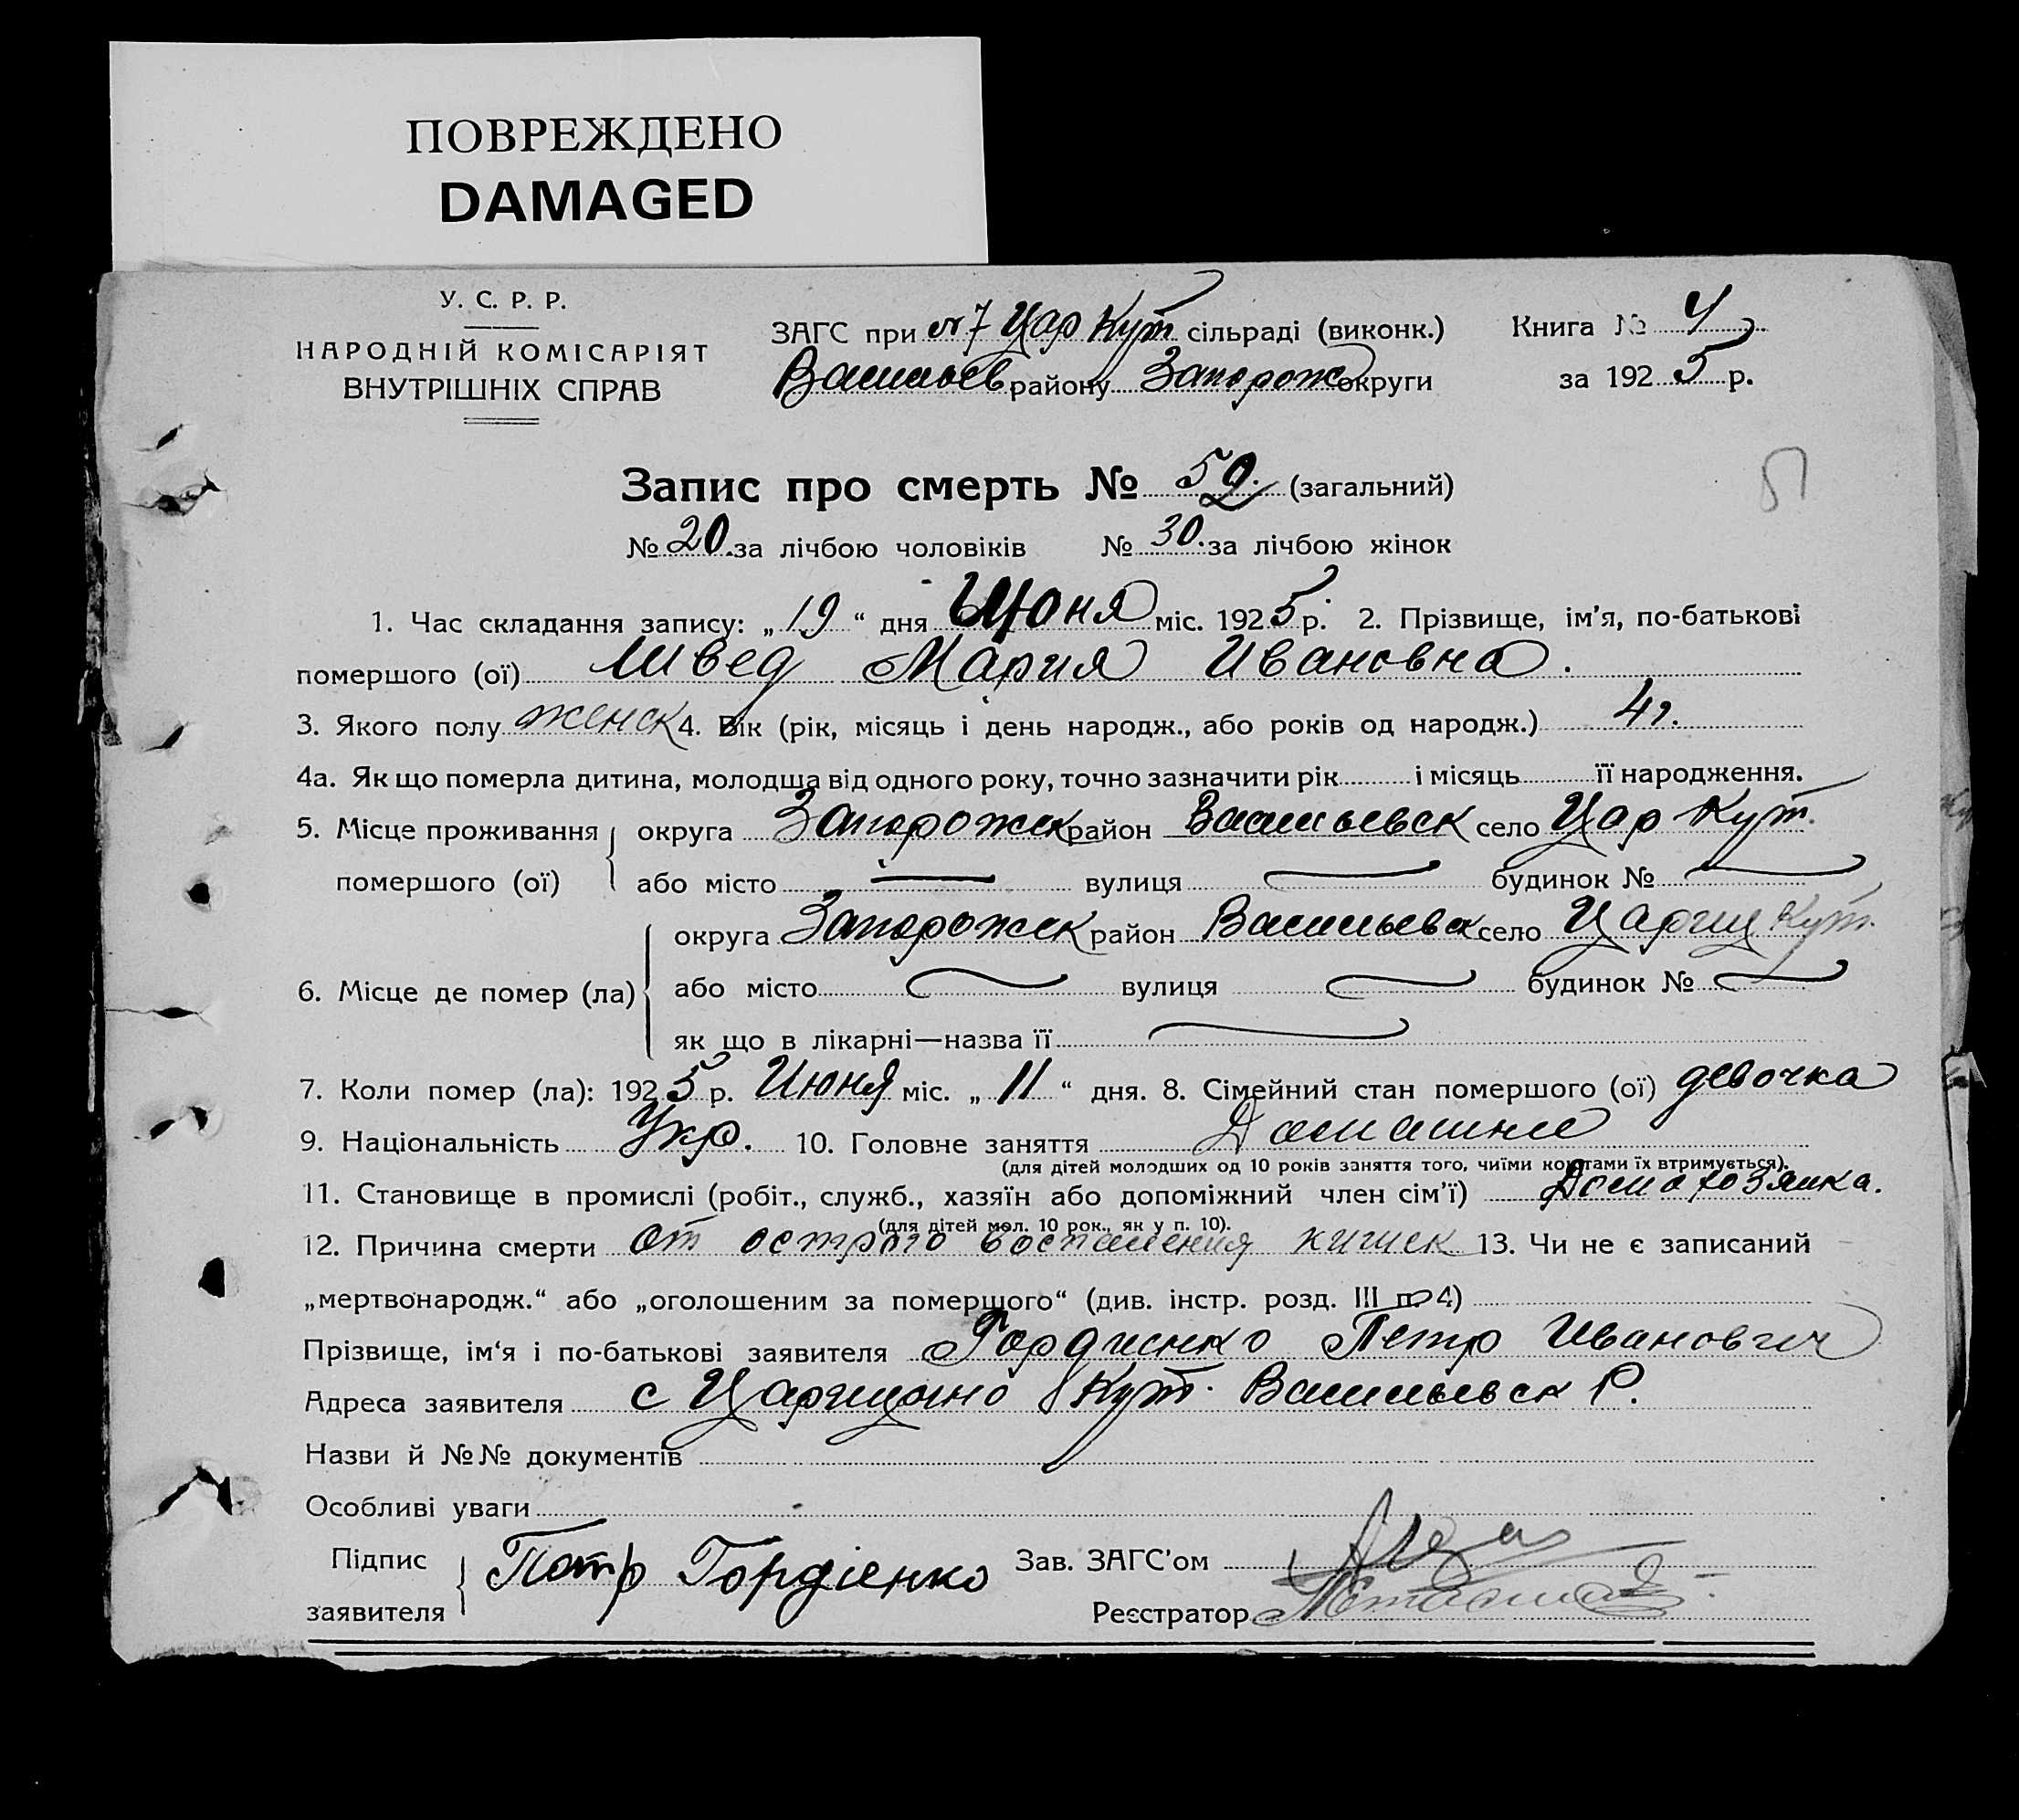 ПОВРЕЖДЕНО
DAMAGED
У. С. Р. Р.
НАРОДНІЙ КОМІСАРІЯТ
ВНУТРІШНІХ СПРАВ
ЗАГС при №7 Цар Кут сільраді (виконк.)
Васильев району Запорож округи
Книга № 4
за 1925 р.
Запис про смерть № 59. (загальний)
№ 20. за лічбою чоловіків № 30. за лічбою жінок
51
1. Час складання запису: „19“ дня Июня міс. 1925 р. 2. Прізвище, ім’я, по-батькові
помершого (ої) Швед Мария Ивановна.
3. Якого полу женск 4. Вік (рік, місяць і день народж., або років од народж.) 4 г.
4а. Як що померла дитина, молодша від одного року, точно зазначити рік і місяць її народження.
5. Місце проживання помершого (ої) округа Запорожск район Васильевск село Цар Кут.
або місто — вулиця — будинок № —
6. Місце де помер (ла) округа Запорожск район Васильевск село Кут.
або місто — вулиця — будинок № —
як що в лікарні—назва її —
7. Коли помер (ла): 1925 р. Июня міс. „11“ дня. 8. Сімейний стан помершого (ої) девочка
9. Національність Укр. 10. Головне заняття
(для дітей молодших од 10 років заняття того, чиїми коштами їх втримується).
11. Становище в промислі (робіт., служб., хазяїн або допоміжний член сім’ї) Домохозяйка.
(для дітей мол. 10 рок., як у п. 10).
12. Причина смерти от острого воспаления кишек 13. Чи не є записаний
„мертвонародж.“ або „оголошеним за померщого“ (див. інстр. розд. III п. 4)
Прізвище, ім‘я і по-батькові заявителя Гордиенко Петр Иванович
Адреса заявителя с Царицыно Кут. Васильевск Р.
Назви й №№ документів
Особливі уваги
Підпис заявителя Петр Гордіенко
Зав. ЗАГС’ом
Реєстратор